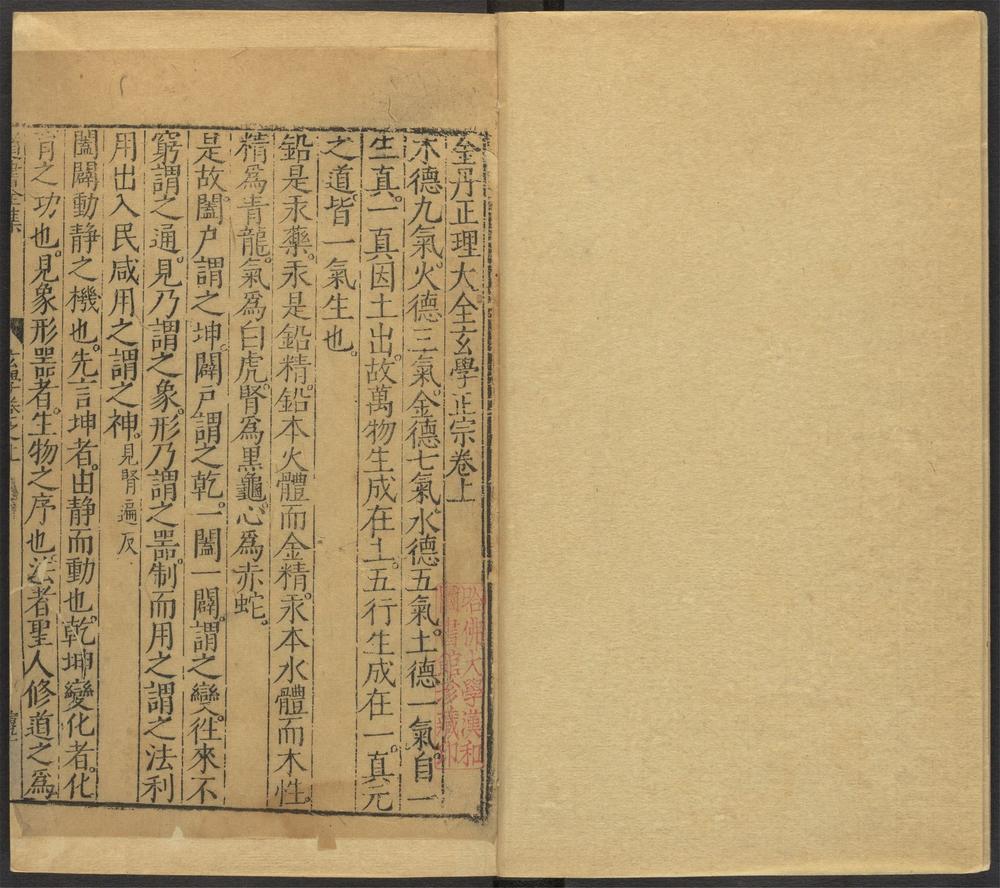 金丹正理大全玄學正宗卷上
木德九氣。火德三氣。金德七氣。水德五氣。土德一氣。自一
生真。一真因土出。故萬物生成在土。五行生成在一。真元
之道。皆一氣生也。
鉛是汞藥。汞是鉛精。鉛本火體而金精。汞本水體而木性。
精爲青龍。氣爲白虎。腎爲黑龜。心爲赤蛇。
是故闔户謂之坤。闢戸謂之乾。一闔一闢。謂之變。徃來不
窮謂之通。見乃謂之象。形乃謂之噐。制而用之謂之法利
用出入民咸用之謂之神。見腎遍反
闔闢動静之機也。先言坤者。由静而動也。乾坤變化者。化
育之功也。見象形噐者。生物之序也。法者聖人修道之爲
道書全集
玄學卷之上
哈佛大學漢和
圖書館珍藏印